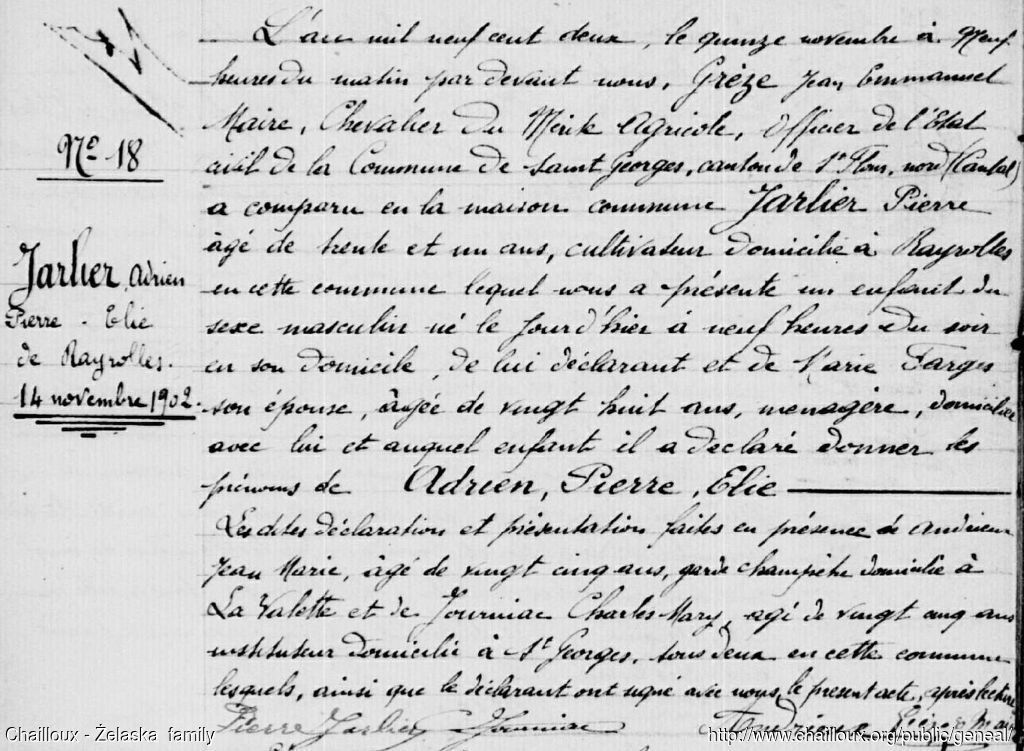 Nº 18
Jarlier Adrien
Pierre - Elie
de Rayrolles.
14 novembre 1902.
L'an mil neuf cent deux, le quinze novembre à Neuf
heures du matin par devant nous, Grèze Jean Emmanuel
Maire, Chevalier du Mérite Agricole, officier de l'Etat
civil de la Commune de Saint Georges, canton de St Flour, nord (Cantal)
a comparu en la maison commune Jarlier Pierre
âgé de trente et un ans, cultivateur domicilié à Rayrolles
en cette commune lequel nous a présenté un enfant du
sexe masculin né le jour d'hier à neuf heures du soir
en son domicile, de lui déclarant et de Marie Farges
son épouse, âgée de vingt huit ans, ménagère, domiciliée
avec lui et auquel enfant il a déclaré donner les
prénoms de Adrien, Pierre, Elie
Les dites déclaration et présentation faites en présence de Andrieux
Jean Marie, âgé de vingt cinq ans, garde champêtre domicilié à
La Valette et de Journiac Charles Mary, agé de vingt cinq ans
instituteur domicilié à St Georges, tous deux en cette commune
lesquels, ainsi que le déclarant ont signé avec nous, le présent acte, après lecture
Pierre Jarlier Journiac Andrieux Grèze Maire
Chailloux - Żelaska family
http://www.chailloux.org/public/geneal/